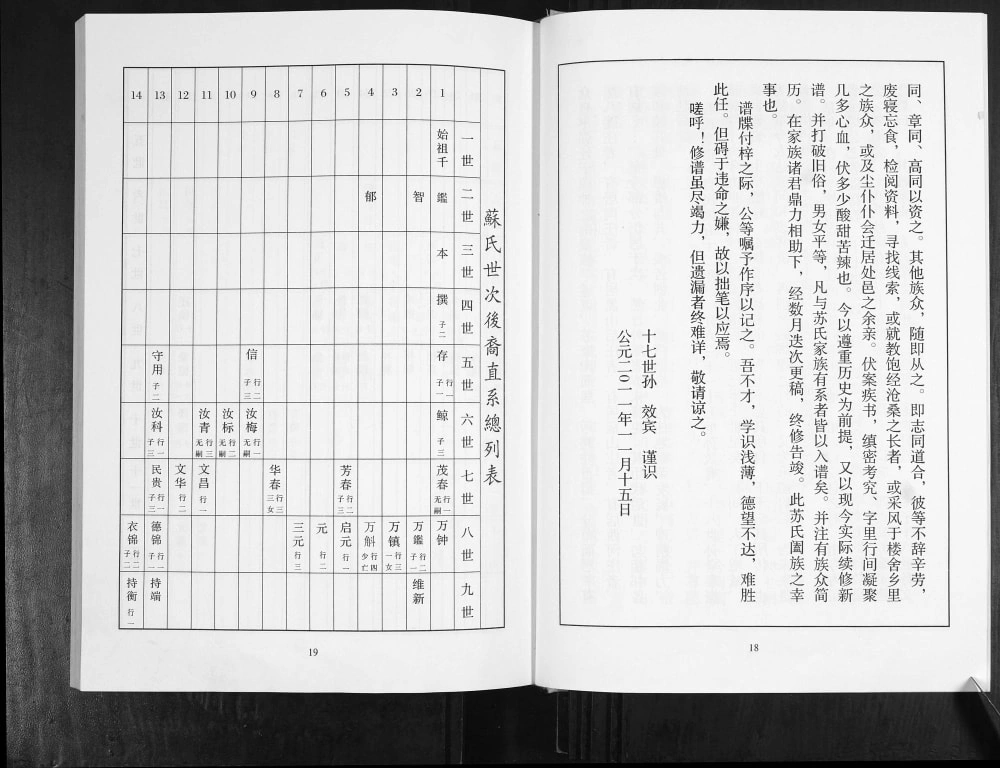 同、章同、高同以资之。其他族众，随即从之。即志同道合，彼等不辞辛劳，
废寝忘食，检阅资料，寻找线索，或就教饱经沧桑之长者，或采风于楼舍乡里
之族众，或及尘仆仆会迁居处邑之余亲。伏案疾书，缜密考究、字里行间凝聚
几多心血，伏多少酸甜苦辣也。今以遵重历史为前提，又以现今实际续修新
谱。并打破旧俗，男女平等，凡与苏氏家族有系者皆以入谱矣。并注有族众简
历。在家族诸君鼎力相助下，经数月迭次更稿，终修告竣。此苏氏阖族之幸
事也。
谱牒付梓之际，公等嘱予作序以记之。吾不才，学识浅薄，德望不达，难胜
此任。但碍于违命之嫌，故以拙笔以应焉。
嗟呼！修谱虽尽竭力，但遗漏者终难详，敬请谅之。
十七世孙 效宾 谨识
公元二〇一一年一一月十五日
18
蘇氏世次後裔直系總列表
一世
二世
三世
四世
五世
六世
七世
八世
九世
1
始祖千
鑑
本
撰 子二
存 行一 子一
鲸 子三
茂春 行一 无嗣
万钟
2
智
万鑑 行二 子一
维新
3
万镇 行三 一女
4
郁
万斛 行四 少亡
5
芳春 行二 子三
启元 行一
6
元 行二
7
三元 行三
8
华春 行三 三女
9
信 行二 子三
汝梅 行一 无嗣
10
汝标 行二 无嗣
11
汝青 行三 无嗣
文昌 行一
12
文华 行二
13
守用 子二
汝科 行一 子三
民贵 行一 子三
德锦 行一 子一
持端
14
衣锦 行二 子二
持衡 行一
19